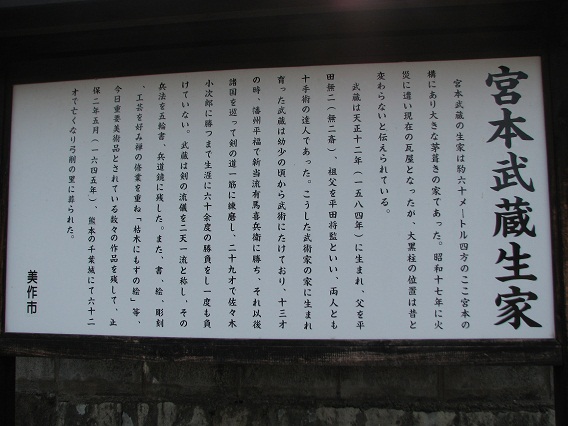 宮本武蔵生家
宮本武蔵の生家は約六十メートル四方のここ宮本の
構にあり大きな茅葺きの家であった。昭和十七年に火
災に遭い現在の瓦屋となったが、大黒柱の位置は昔と
変わらないと伝えられている。
武蔵は天正十二年（一五八四年）に生まれ、父を平
田無二（無二斎）、祖父を平田将監といい、両人とも
十手術の達人であった。こうした武術家の家に生まれ
育った武蔵は幼少の頃から武術にたけており、十三才
の時、播州平福で新当流有馬喜兵衛に勝ち、それ以後
諸国を巡って剣の道一筋に練磨し、二十九才で佐々木
小次郎に勝つまで生涯に六十余度の勝負をし一度も負
けていない。武蔵は剣の流儀を二天一流と称し、その
兵法を五輪書、兵道鏡に残した。また、書、絵、彫刻
、工芸を好み禅の修業を重ね「枯木にもずの絵」等、
今日重要美術品とされている数々の作品を残して、正
保二年五月（一六四五年）、熊本の千葉城にて六十二
才で亡くなり弓削の里に葬られた。
美作市